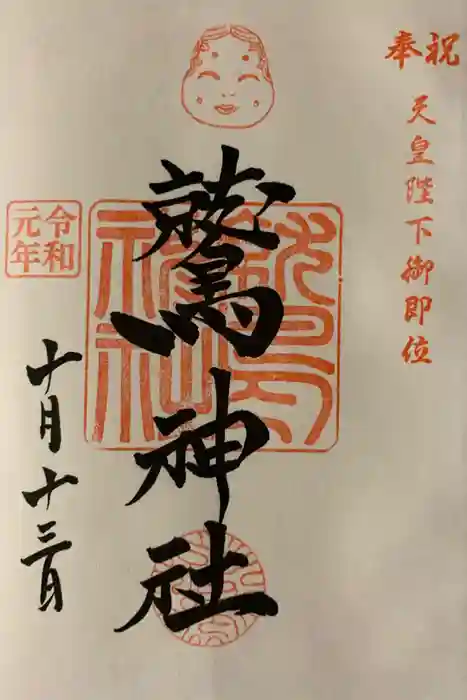 奉祝
天皇陛下御即位
鷲神社
鷲神社
令和
元年
十月十三日